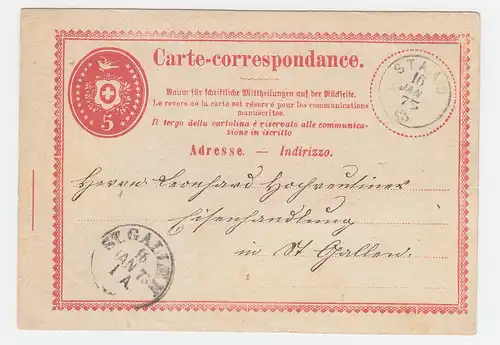 Carte-correspondance.
5
Raum für schriftliche Mittheilungen auf der Rückseite.
Le revers de la carte est réservé pour les communications
manuscrites.
Il tergo della cartolina é riservato alle communica-
zione in iscritto
Adresse. — Indirizzo.
STAAD
16
JAN
73
Herrn Leonhard Hochreutiner
Eisenhandlung
in St Gallen.
ST. GALLEN
16
JAN 73
1 A.